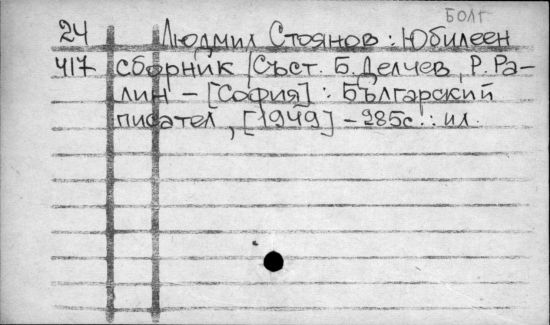 БОЛГ
24 Людмил Стоянов : Юбилеен
417 сборник / Съст. Б. Делчев, Р. Ра-
лин – [София] : Български
писател, [1949] – 285с. : ил.